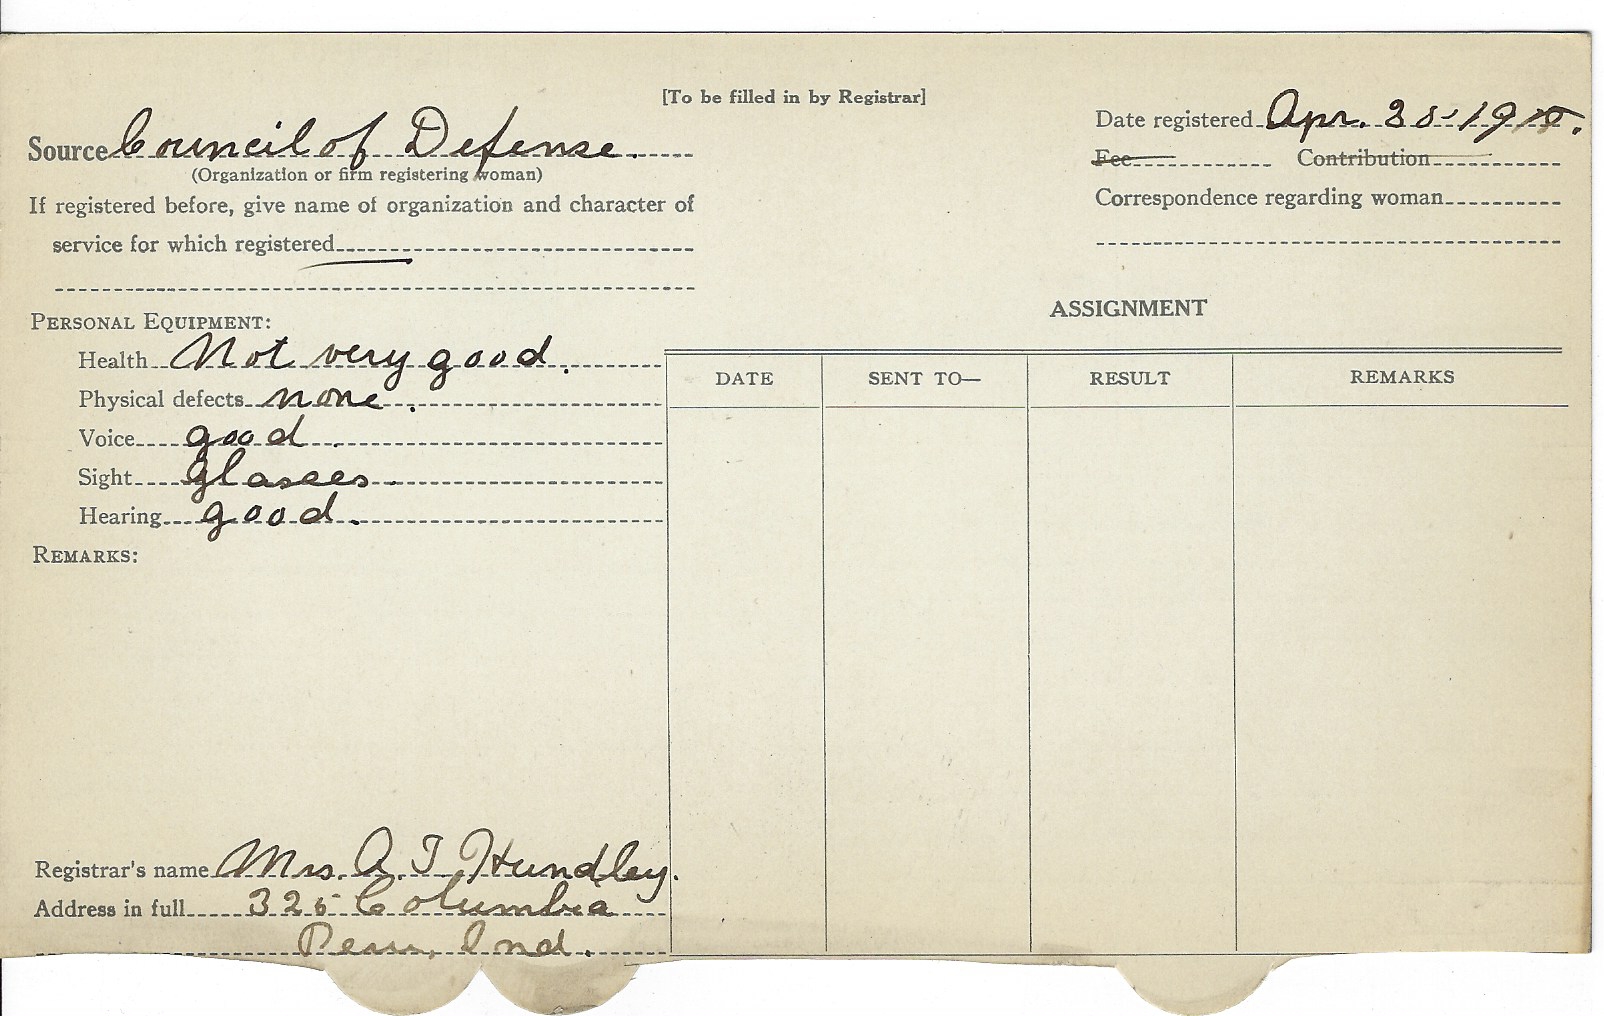 [To be filled in by Registrar]
Source Council of Defense.
(Organization or firm registering woman)
If registered before, give name of organization and character of
service for which registered
Date registered Apr.
Fee Contribution
Correspondence regarding woman
PERSONAL EQUIPMENT:
Health Not very good.
Physical defects none.
Voice good.
Sight glasses.
Hearing good.
REMARKS:
ASSIGNMENT
DATE SENT TO— RESULT REMARKS
Registrar's name Mrs. A. T. Hundley.
Address in full 325 Columbia
Peru, Ind.